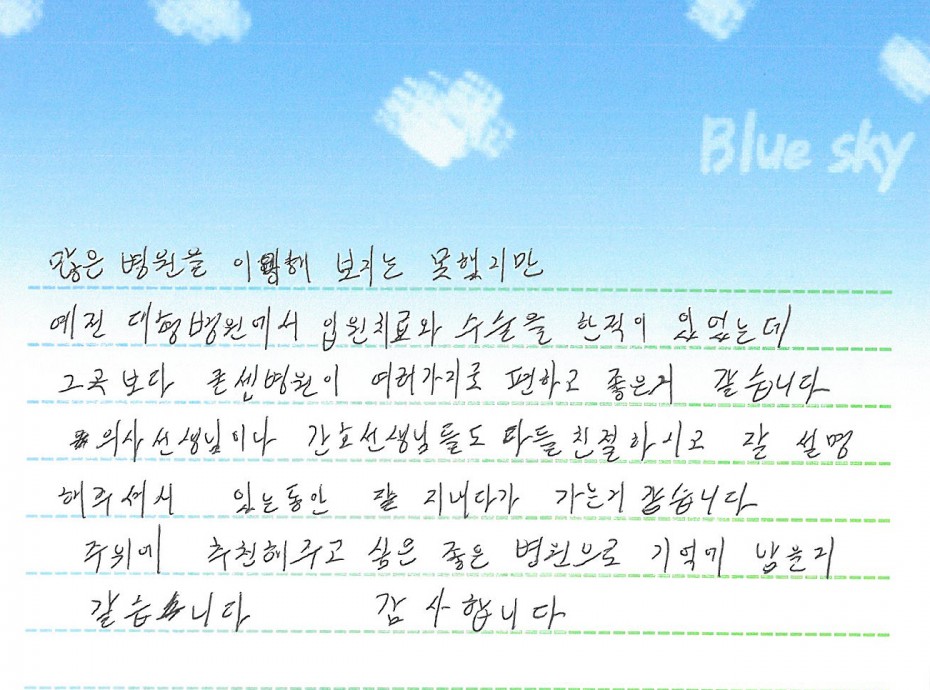 Blue sky
많은 병원을 이용해 보지는 못했지만
예전 대형병원에서 입원치료와 수술을 한적이 있었는데
그곳보다 콘센병원이 여러가지로 편하고 좋은거 같습니다
의사선생님이나 간호선생님들도 다들친절하시고 잘 설명
해주셔서 있는동안 잘 지내다가 가는거 같습니다
주위에 추천해주고 싶은 좋은 병원으로 기억에 남을거
같습니다 감사합니다